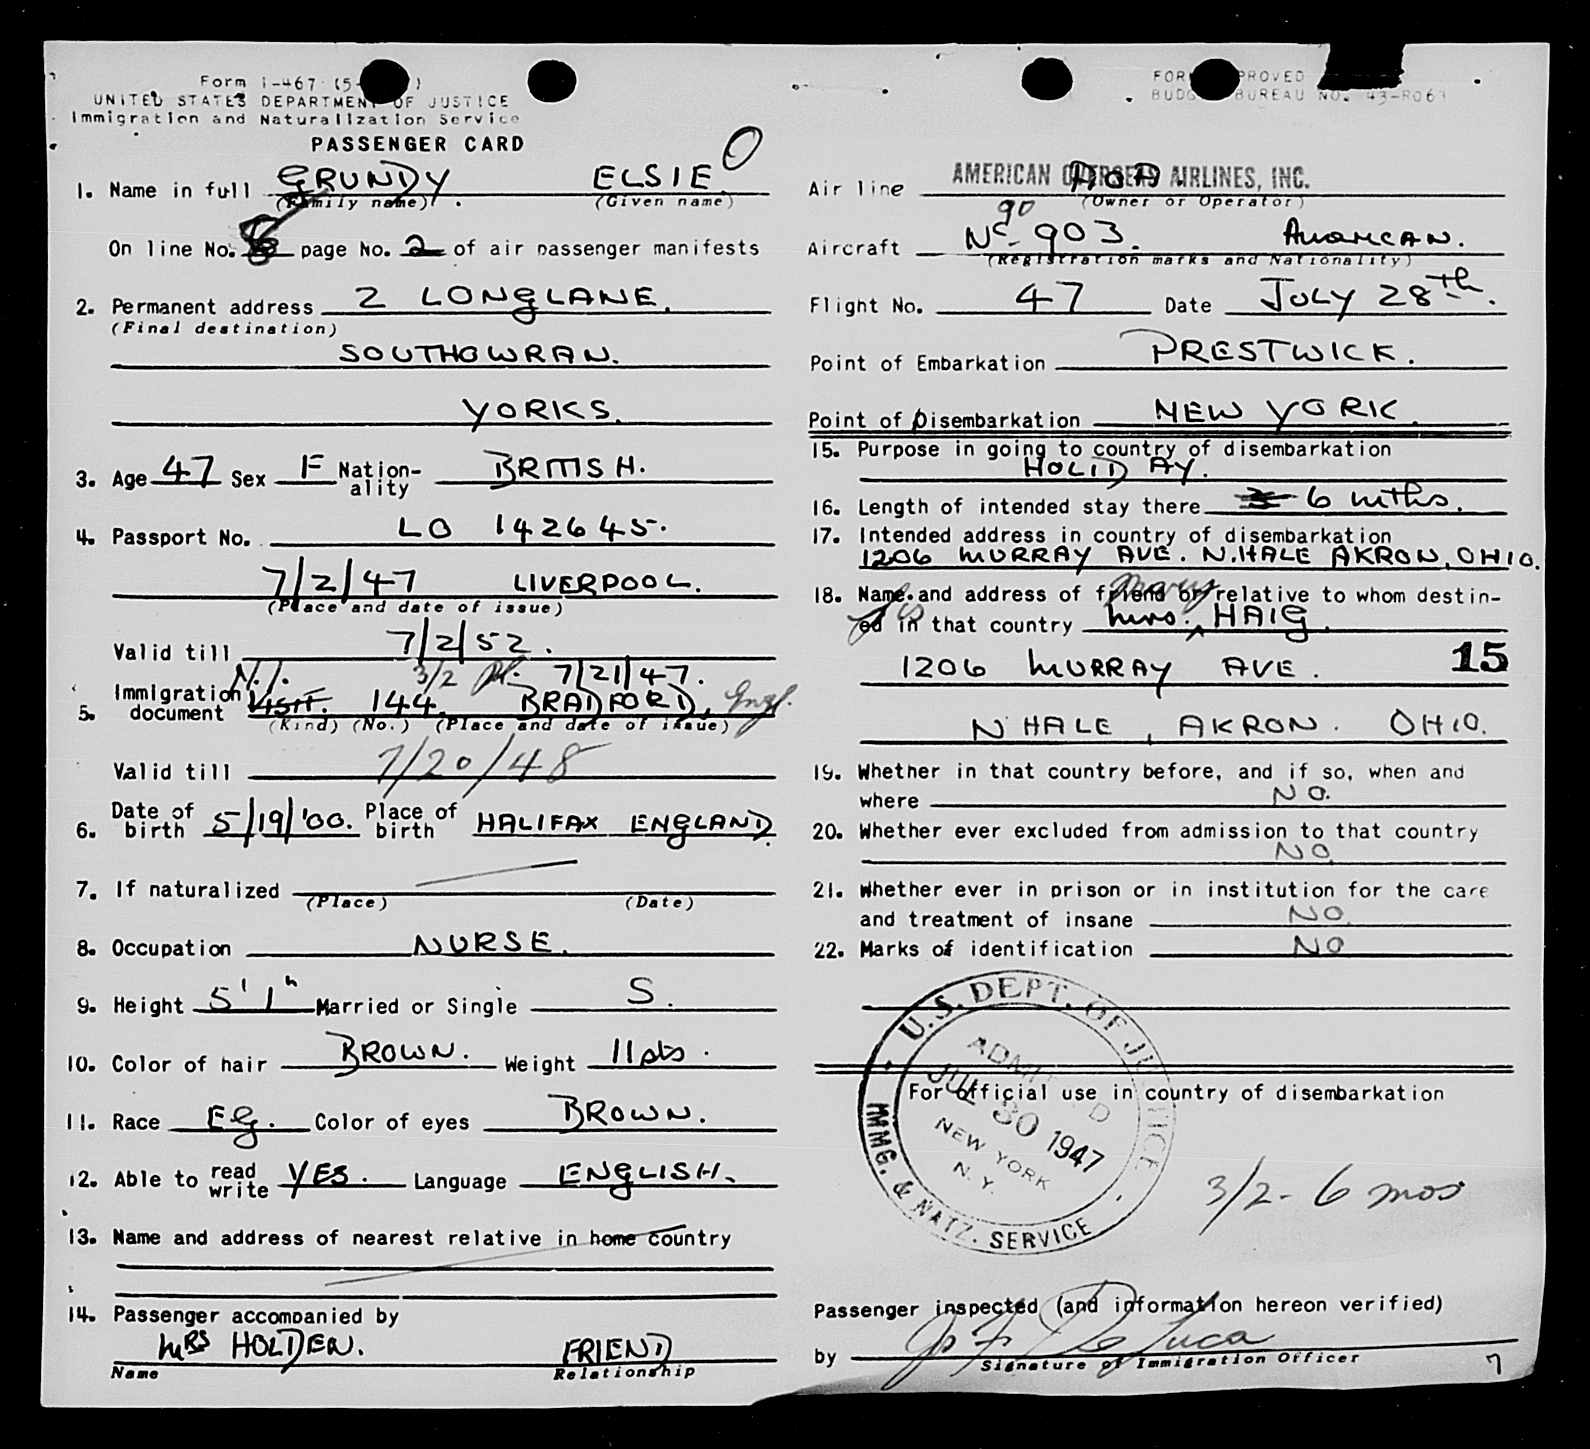 Form I-467 (5-
UNITED STATES DEPARTMENT OF JUSTICE
Immigration and Naturalization Service
PASSENGER CARD
1. Name in full GRUNDY ELSIE
(Family name) (Given name)
On line No. 8 page No. 2 of air passenger manifests
2. Permanent address 2 LONGLANE.
(Final destination)
SOUTHOWRAN.
YORKS.
3. Age 47 Sex F Nation-ality BRITISH.
4. Passport No. LO 142645.
7/2/47 LIVERPOOL.
(Place and date of issue)
Valid till 7/2/52.
N.I. 3/2 7/21/47.
5. Immigration document Visit. 144. BRADFORD, Engl.
(Kind) (No.) (Place and date of issue)
Valid till 7/20/48
6. Date of birth 5/19/'00. Place of birth HALIFAX ENGLAND.
7. If naturalized
(Place) (Date)
8. Occupation NURSE.
9. Height 5' 1" Married or Single S.
10. Color of hair BROWN. Weight 11 sts.
11. Race EG. Color of eyes BROWN.
12. Able to read write YES. Language ENGLISH.
13. Name and address of nearest relative in home country
14. Passenger accompanied by
MRS HOLDEN. FRIEND
Name Relationship
FORM APPROVED
BUDGET BUREAU NO. 43-R063
Air line AMERICAN OVERSEAS AIRLINES, INC.
AOA
(Owner or Operator)
90
Aircraft NC-903. AMERICAN.
(Registration marks and Nationality)
Flight No. 47 Date JULY 28th.
Point of Embarkation PRESTWICK.
Point of Disembarkation NEW YORK.
15. Purpose in going to country of disembarkation
HOLIDAY.
16. Length of intended stay there 6 mths.
17. Intended address in country of disembarkation
1206 MURRAY AVE. N.HALE AKRON, OHIO.
18. Name and address of friend or relative to whom destin-
ed in that country Mrs. Mary HAIG.
1206 MURRAY AVE. 15
N HALE, AKRON. OHIO.
19. Whether in that country before, and if so, when and
where NO.
20. Whether ever excluded from admission to that country
NO
21. Whether ever in prison or in institution for the care
and treatment of insane NO
22. Marks of identification NO
U.S. DEPT. OF JUSTICE
IMMG. & NATZ. SERVICE
ADMITTED
JUL 30 1947
NEW YORK
N. Y.
For official use in country of disembarkation
3/2 - 6 mos
Passenger inspected (and information hereon verified)
by De Luca
Signature of Immigration Officer
7